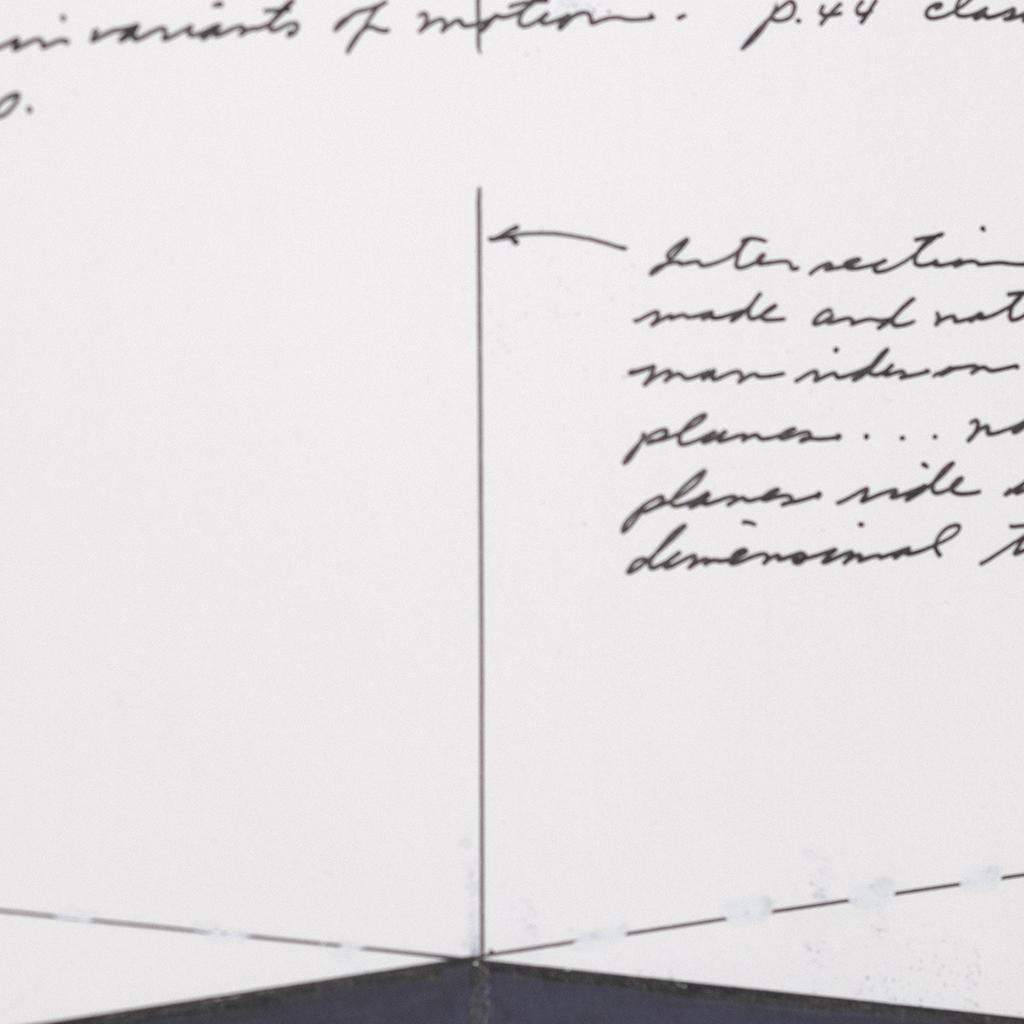 invariants of motion. p.44 clas
o.
Intersection
made and nat
man rides on
planes... na
planes ride
dimensional t